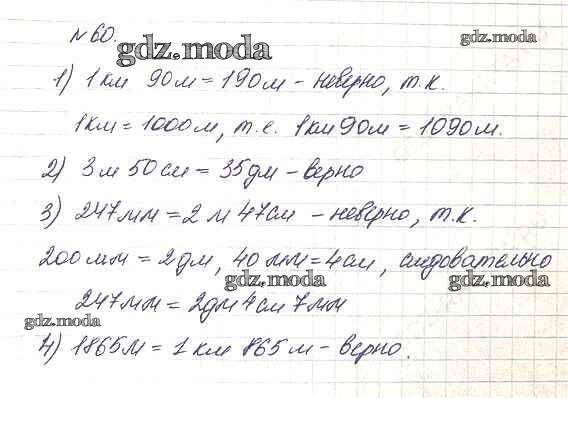 №60.
gdz.moda
gdz.moda
1) 1км 90м = 190м - неверно, т.к.
1км = 1000м, т.е. 1км 90м = 1090м.
2) 3м 50см = 35дм - верно
3) 247мм = 2м 47см - неверно, т.к.
200мм = 2дм, 40мм = 4см, следовательно
gdz.moda
gdz.moda
247мм = 2дм 4см 7мм
gdz.moda
4) 1865м = 1км 865м - верно.